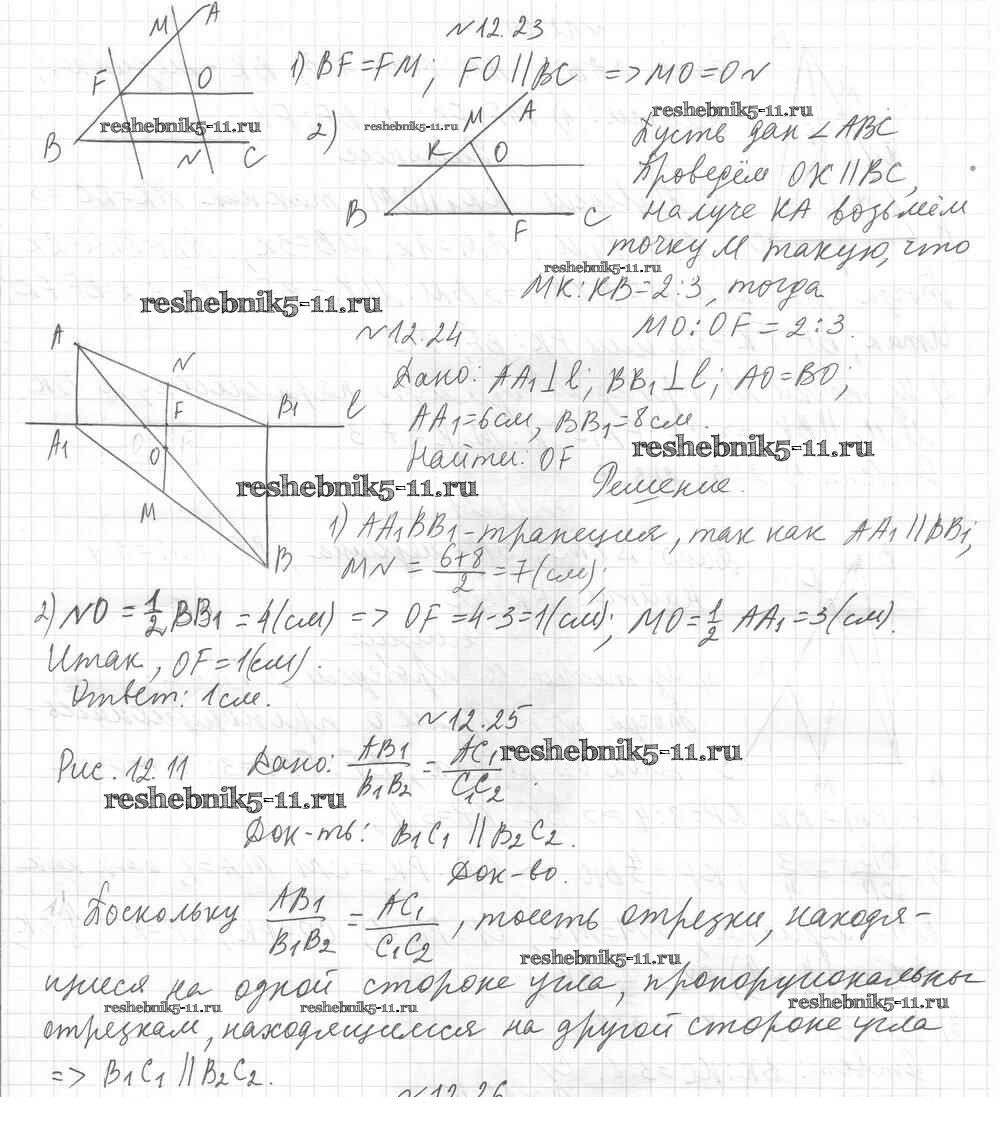 №12.23
M A
F O
1) BF=FM; FO||BC => MO=ON
reshebnik5-11.ru
B N C
2)
reshebnik5-11.ru
reshebnik5-11.ru
M A
K O
B F C
Пусть дан ∠ABC
Проведём OK||BC,
на луче KA возьмём
точку M такую, что
reshebnik5-11.ru
MK:KB=2:3, тогда
MO:OF=2:3.
reshebnik5-11.ru
№12.24
A N
F B1 l
A1 O
M
B
Дано: AA1⊥l; BB1⊥l; AO=BO;
AA1=6см, BB1=8см.
reshebnik5-11.ru
Найти: OF
reshebnik5-11.ru
Решение.
1) AA1BB1-трапеция, так как AA1||BB1;
MN = (6+8)/2 = 7(см);
2) NO = 1/2 BB1 = 4(см) => OF=4-3=1(см); MO=1/2 AA1=3(см).
Итак, OF=1(см).
Ответ: 1см.
№12.25
Рис. 12.11 Дано: AB1/B1B2 = AC1/C1C2.
reshebnik5-11.ru
reshebnik5-11.ru
Док-ть: B1C1 || B2C2.
Док-во.
Поскольку AB1/B1B2 = AC1/C1C2, то есть отрезки, находя-
reshebnik5-11.ru
щиеся на одной стороне угла, пропорциональны
reshebnik5-11.ru reshebnik5-11.ru reshebnik5-11.ru
отрезкам, находящимся на другой стороне угла
=> B1C1 || B2C2.
№12.26